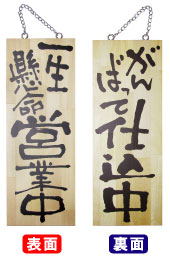 一生
懸命
営業中
がん
ばって
仕込中
表面
裏面